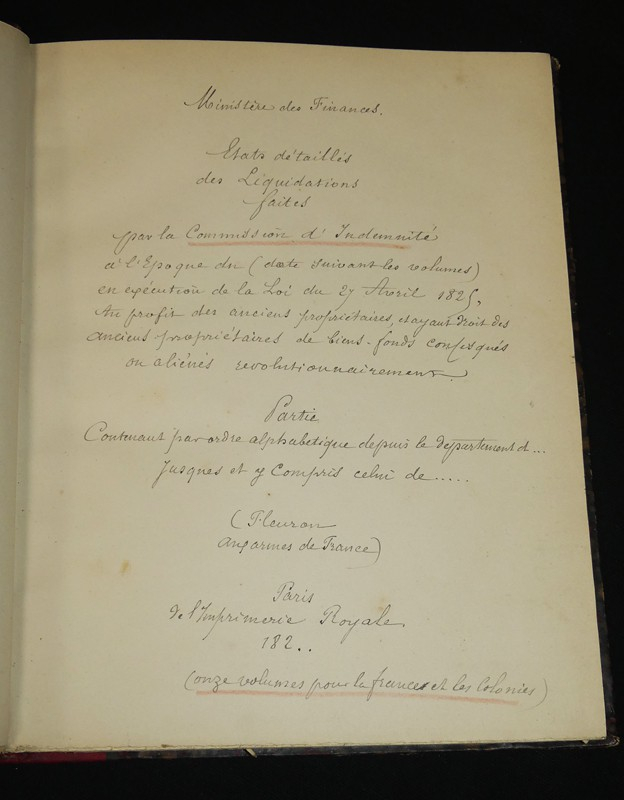 Ministère des Finances.
Etats détaillés
des Liquidations
faites
par la Commission d'Indemnité
à l'Epoque du (date suivant les volumes)
en exécution de la Loi du 27 Avril 1825,
Au profit des anciens propriétaires, et ayant droit des
anciens propriétaires de biens-fonds confisqués
ou aliénés revolutionnairement.
Partie
Contenant par ordre alphabetique depuis le departement d...
Jusques et y Compris celui de.....
(Fleuron
aux armes de France)
Paris
de l'Imprimerie Royale.
182..
(onze volumes pour la france et les Colonies)